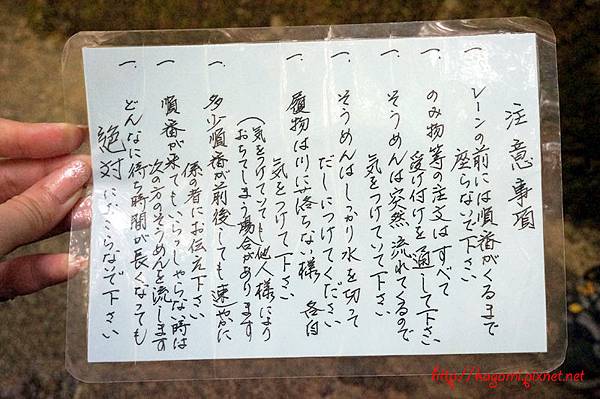 注意事項
一、レーンの前には順番がくるまで
座らないで下さい
一、のみ物等の注文はすべて
受け付けを通して下さい
一、そうめんは突然流れてくるので
気をつけていて下さい
一、そうめんはしっかり水を切って
だしにつけてください
一、履物は川に落らない様 各自
気をつけて下さい
(気をつけていても他人様により
おちてしまう場合があります)
一、多少順番が前後しても速やかに
係の者にお伝え下さい
一、順番が来てもいらっしゃらない時は
次の方のそうめんを流します
一、どんなに待ち時間が長くなっても
絶対におこらないで下さい
http://kagami.pixnet.net